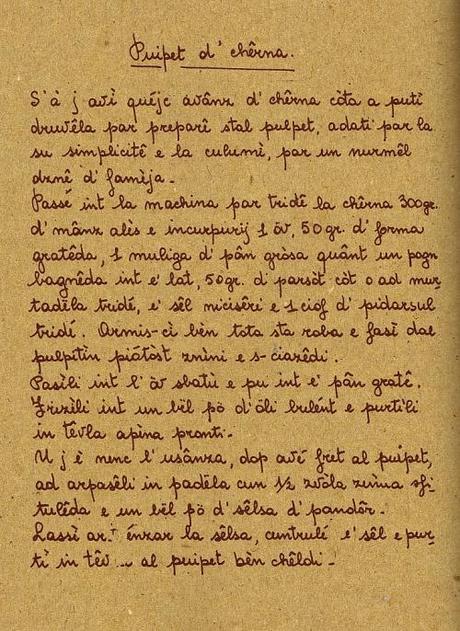 Puipet d' chêrna.
S'à j avì quéjc avânz d' chêrna còta a putì
druvêla par preparê stal pulpet, adati par la
su simplicitê e la culumì, par un nurmêl
dṣnê d' famèja.
Passé int la machina par tridê la chêrna 300gr.
d' mânz alès e incurpurij 1 öv, 50 gr. d' forma
gratêda, 1 muliga d' pân gròsa quânt un pogn
bagnêda int e' lat, 50gr. d' parsòt còt o ad mur-
tadèla tridé, e' sêl niciséri e 1 ciof d' pidarsul
tridé. Armis-cì bèn tota sta roba e fasì dal
pulpitìn piótòst znìni e s-ciazêdi.
Pasèli int l' öv sbatù e pu int e' pân gratê.
Friẓìli int un bël pö d' öli bulént e purtìli
in têvla apìna pronti.
U j è nenc l' usânza, dop avé fret al puipet,
ad arpasêli in padëla cun ½ zvòla zuina sfi-
tulêda e un bël pö d' sêlsa d' pandôr.
Lassì ar... énzar la sêlsa, cuntrulé e' sêl e pur-
tì in têv... al puipet bèn chêldi.